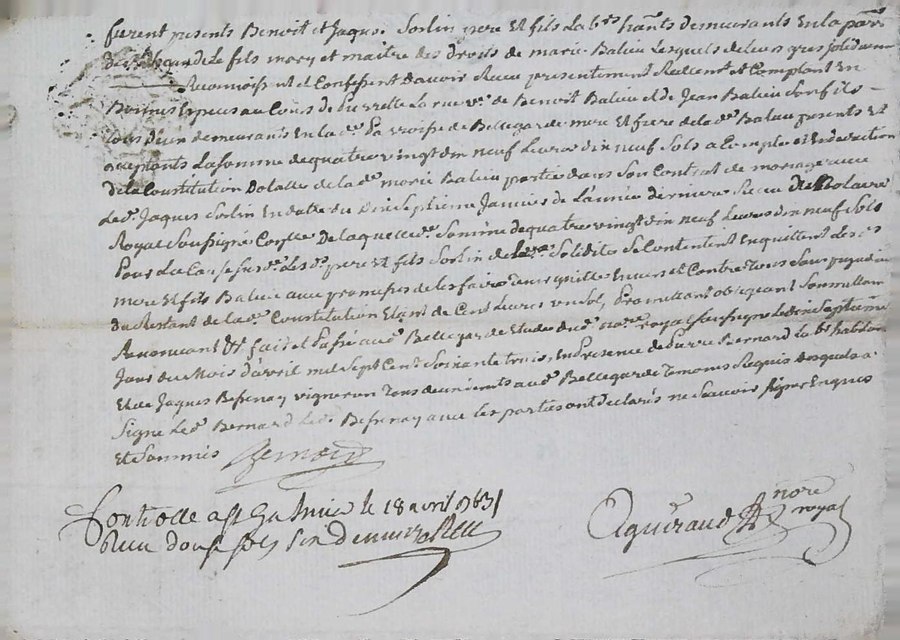 furent presents Benoit et Jaques Sorlin pere et fils Lab.rs hāts demeurants en la parr
de le fils mary et maitre des droits de marie Baleu Lesquels de leurs gres solidairem
Reconnoissent et Confessent d'avoir Receu presentement Reellement et Comptant En
Bonnes Especes au Cours de pierrette La rue v.ve de Benoit Baleu et de Jean Baleu son fils
demeurants en la d.e parroisse de Bellegarde mere et frere de la d.e Baleu presents et
acceptants La somme de quatre vingt dix neuf Livres dix neuf sols a Compte et en deduction
de la Constitution Dotalle de la d.e marie Baleu portée dans son Contrat de mariage avec
Le d. Jaques Sorlin en datte du Dix septieme Janvier de L'année derniere Receu
Royal soussigné De laquelle d.e somme de quatre vingt dix neuf Livres dix neuf sols
pour La Cause susd. Les d.s pere et fils Sorlin de lad.e solidité se Contentent En quittent Les d.s
mere et fils Baleu avec promesse de les faire tenir quittes Envers et Contre tous sans prejudice
du Restant de la d.e Constitution Etant de Cent Livres un sol, promettant obligeant soumettant
Renonceant &c fait et passé aud. Bellegarde Etude dud. no.re royal soussigné Le dix septieme
Jour du Mois d'avril mil sept Cent soixante trois, en presence de pierre Bernard La.br habitant
Et de Jaques Bessenay vigneron tous deux aud. Bellegarde temoins Requis Lesquels a
signé Le d. Bernard Le d. Bessenay avec les parties ont declarés ne scavoir signer Enquis
Et sommés
Bernard
Controlle a st Galmier le 18 avril 1763
Receu douze sols six deniers
Aguiraud nore
royal